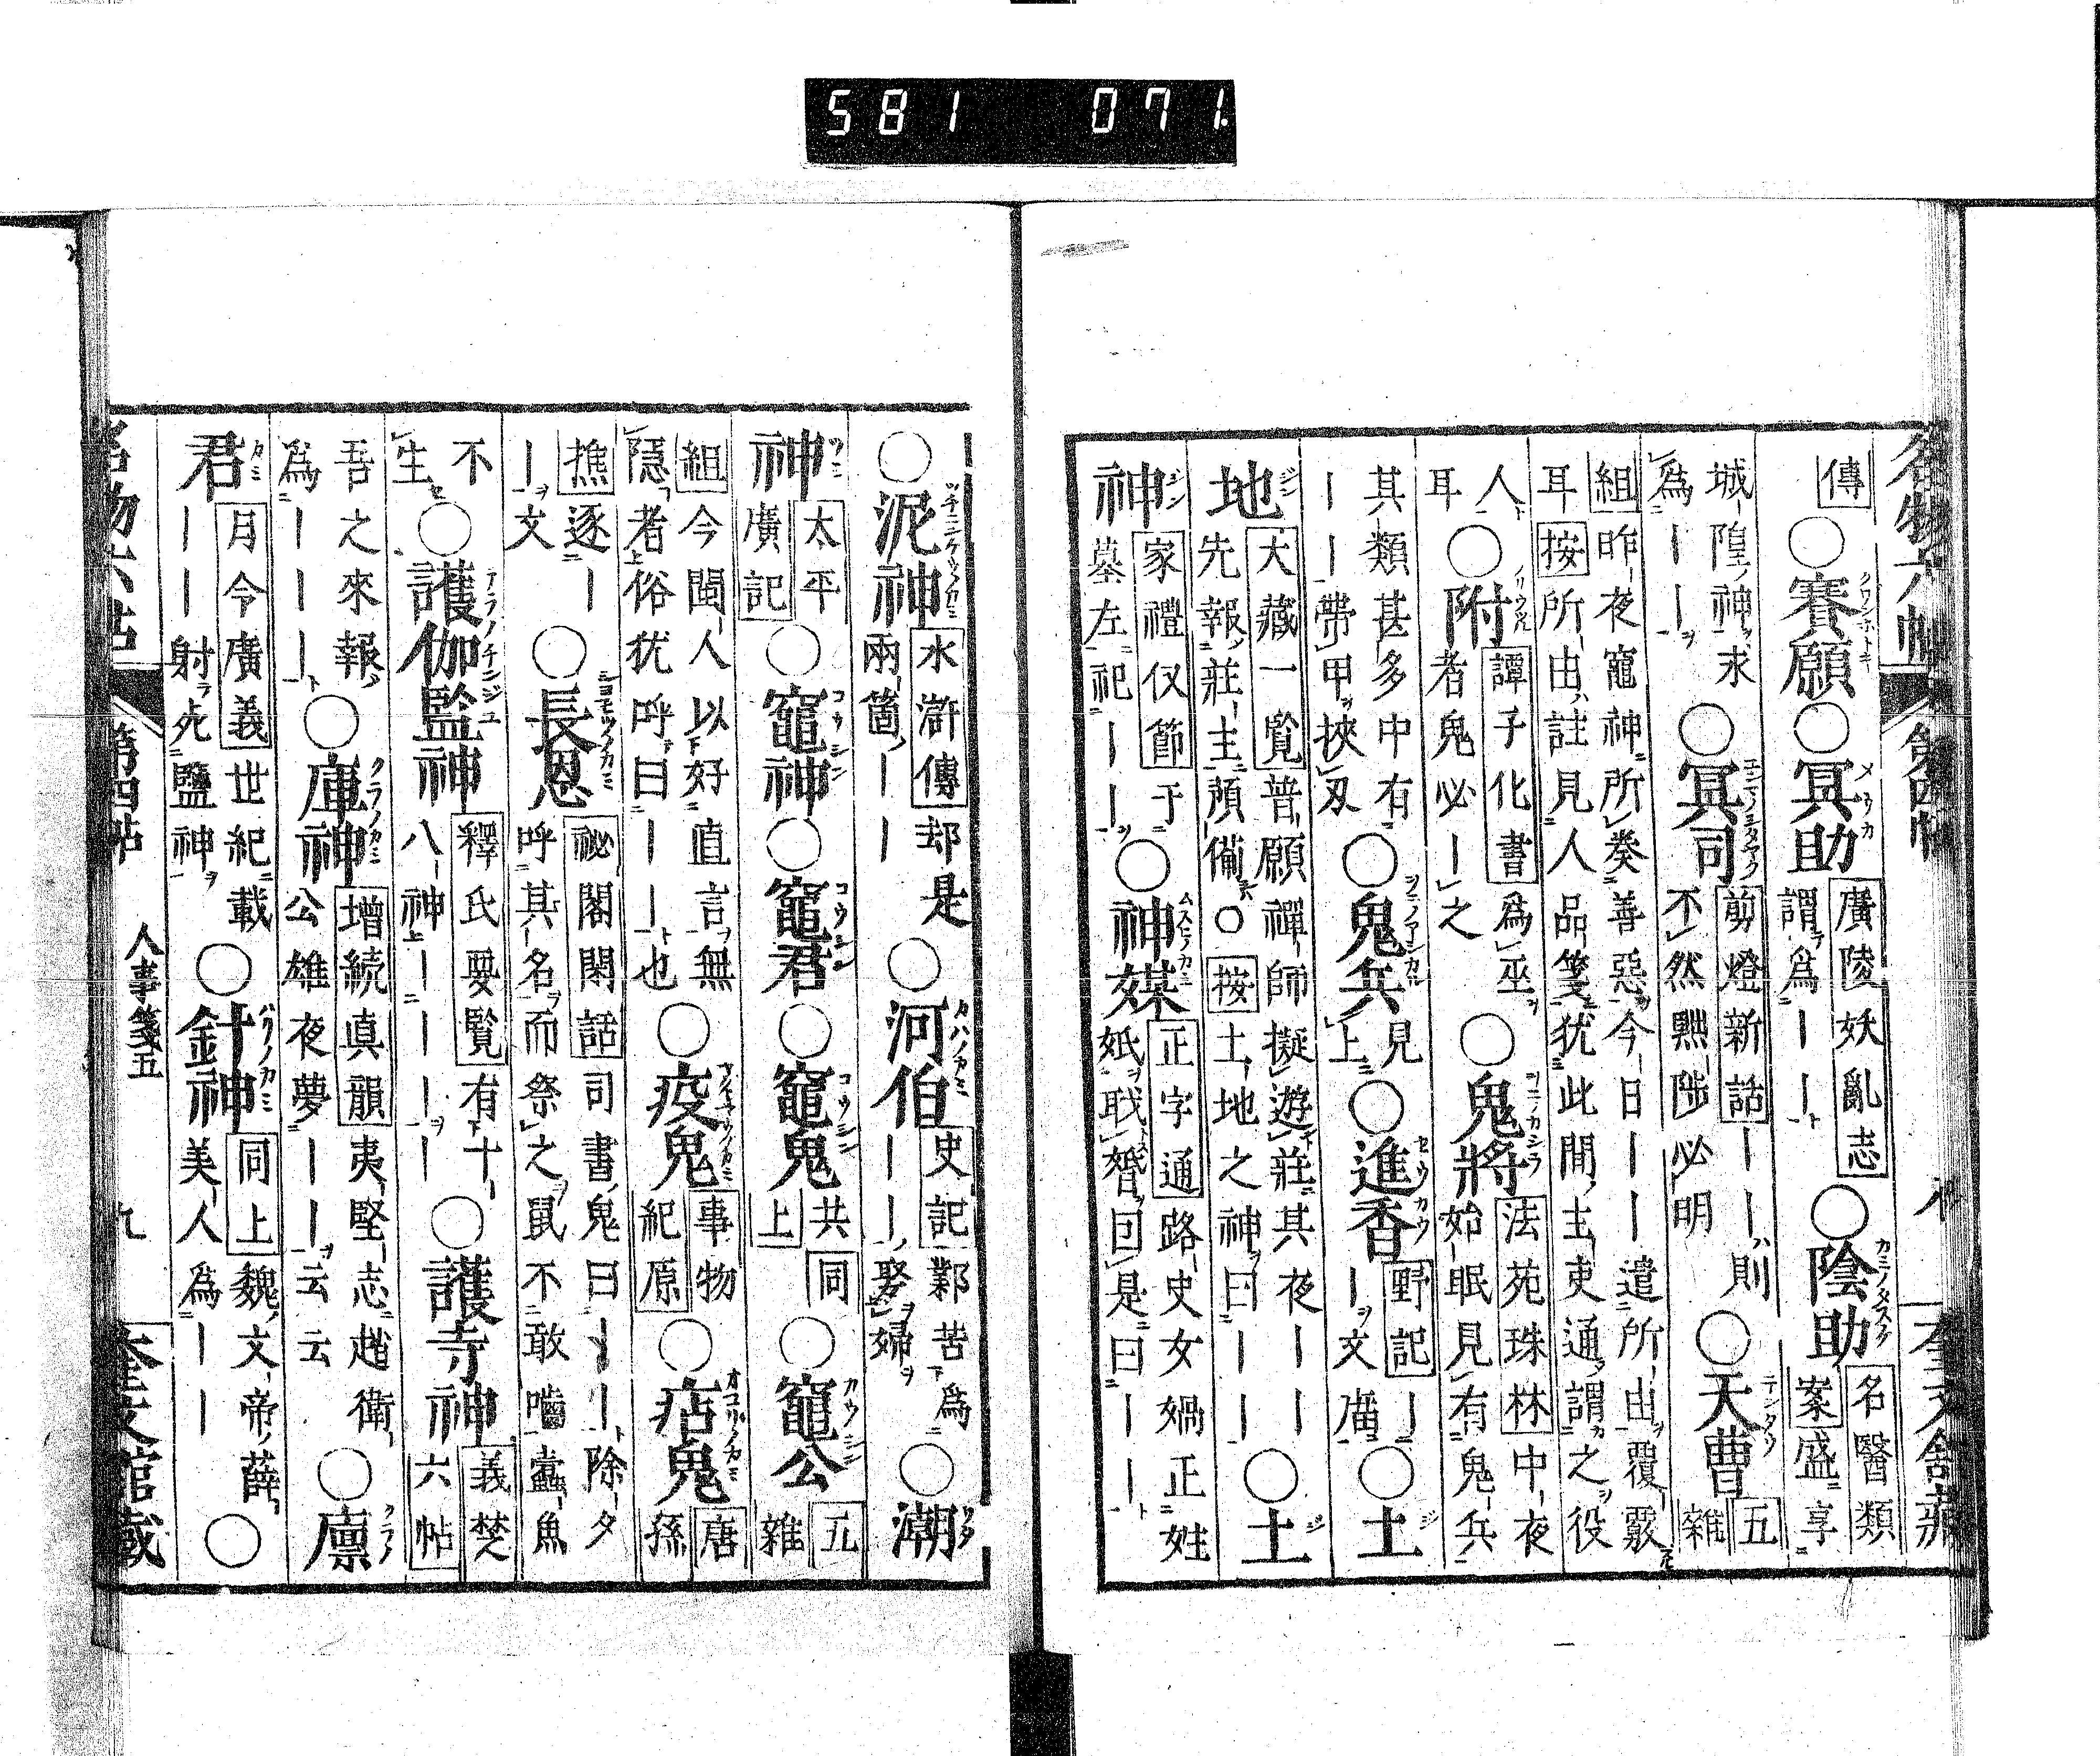 581 071.
名物六帖 第四帖 八 奎文館藏
傳 ○賽願 ○冥助 廣陵妖亂志 謂為｜｜ ○陰助 名醫類案 盛享
城隍神求為｜｜｜ ○冥司 剪燈新話 ｜｜則不然黜陟必明 ○天曹 五雜
組 昨夜竈神所奏善惡今日｜｜遣所由覆覈耳 按所由註見人品箋犹此間主吏通謂之役
人耳 ○附 譚子化書 為巫者鬼必｜之 ○鬼將 法苑珠林 中夜始眠見有鬼兵
其類甚多中有｜｜帶甲挾刃 ○鬼兵 見上 ○進香 野記 ｜｜文廟 ○土
地 大藏一覧 普願禪師擬遊莊其夜｜｜先報莊主預備 ○按 土地之神曰｜｜ ○土
神 家禮仪節 于墓左祀｜｜ ○神媒 正字通 路史女媧正姓氏職婚回是曰｜｜
○泥神 水滸傳 却是兩箇｜｜ ○河伯 史記 鄴苦為｜｜娶婦 ○潮
神 太平廣記 ○竈神 ○竈君 ○竈鬼 共同上 ○竈公 五雜
組 今閩人以好直言無隱者俗犹呼曰｜｜也 ○疫鬼 事物紀原 ○痁鬼 唐孫
樵 逐｜｜文 ○長恩 祕閣閑話 司書鬼曰｜｜除夕呼其名而祭之鼠不敢嚙蠹魚
不生 ○護伽監神 釋氏要覧 有十八神｜｜｜｜ ○護寺神 義楚六帖
吾之來報為｜｜｜ ○庫神 增続真韻 夷堅志趙衛公雄夜夢｜｜云云 ○廪
君 月令廣義 世紀載｜｜射死鹽神 ○針神 同上 魏文帝薛美人為｜｜ ○
名物六帖 第四帖 人事箋五 九 奎文館藏